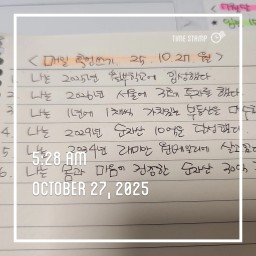 TIME STAMP
< 매일 확언쓰기 25. 10. 27. 월 >
1. 나는 2025년
2. 나는 2026년 서울에 3호기 투자를 했다.
3. 나는 1년에 1채씩 가치있는 부동산을
4 나는 2029년 순자산 10억을 달성했다.
5 나는 2034년 래미안
6. 나는 몸과 마음이 건강한 순자산 30억
5:28 AM
OCTOBER 27, 2025